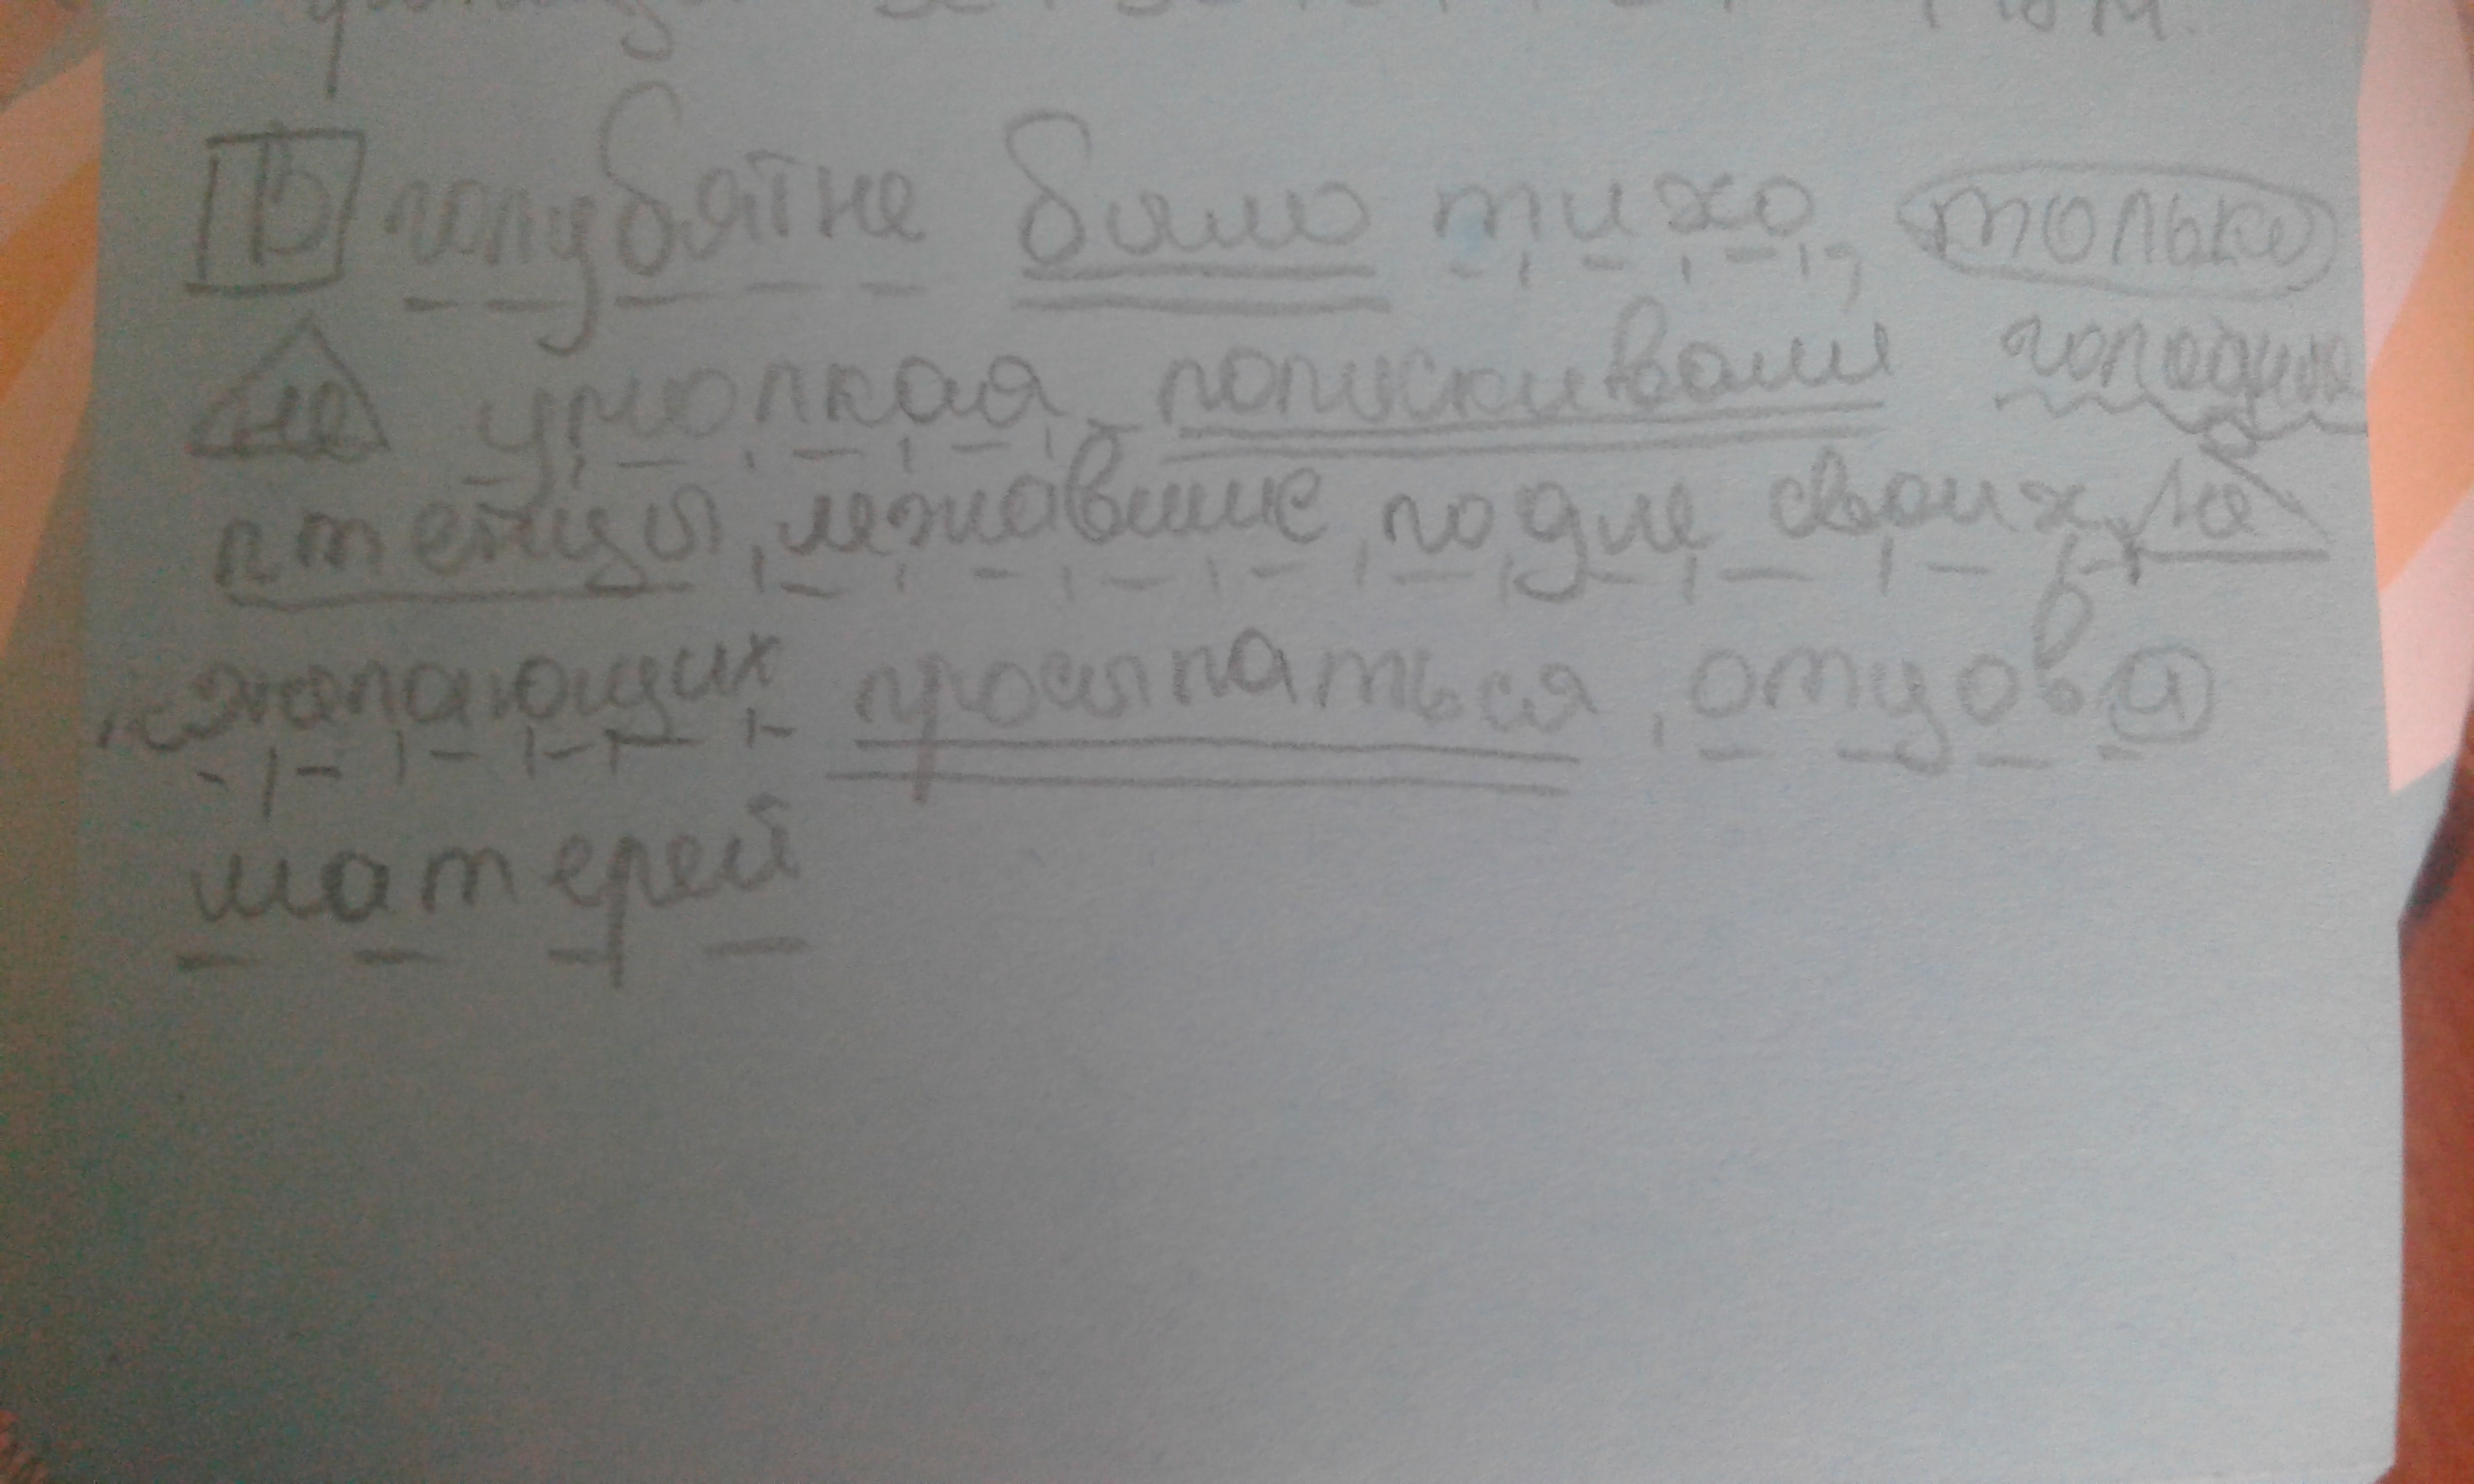 В голубятне было тихо, только
не умолкая попискивали голодные
птенцы, лежавшие подле своих не
желающих просыпаться, отцов и
матерей